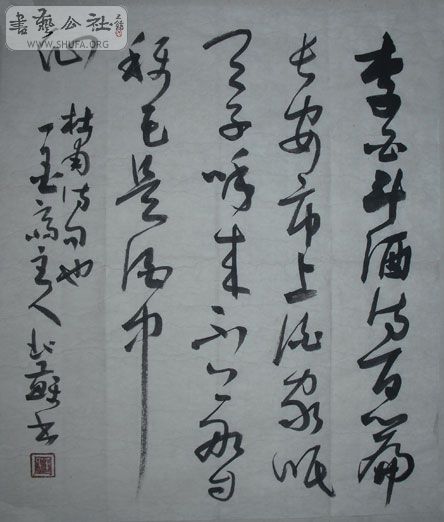 書藝公社
WWW.SHUFA.ORG
李白斗酒诗百篇
长安市上酒家眠
天子呼来不上船自
称臣是酒中
仙
杜甫诗句也
一 斋主人 蘇书